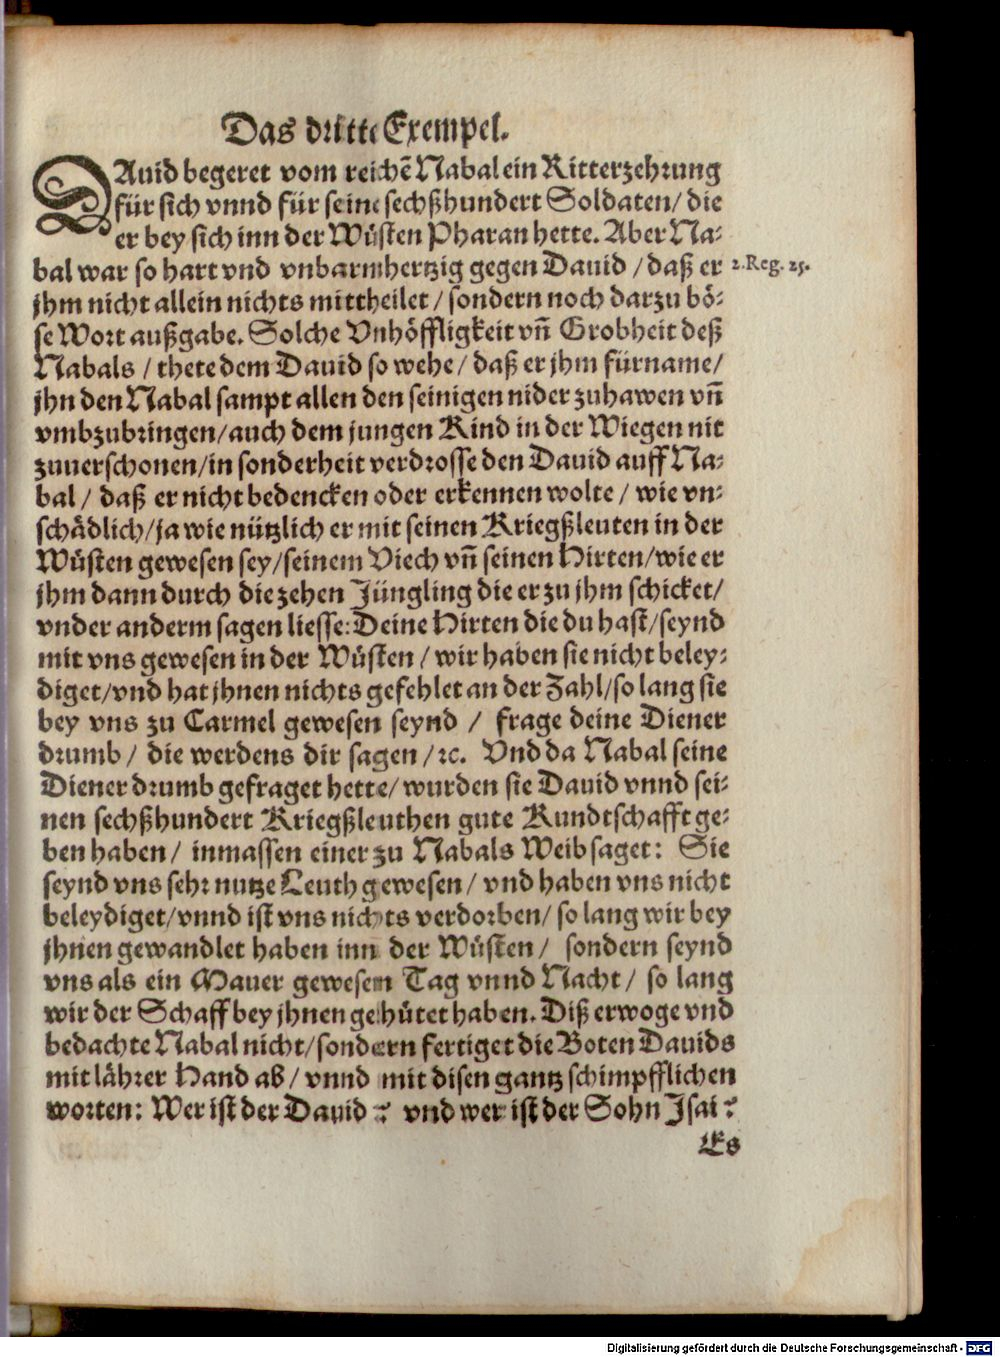 Das dritte Exempel.
DAuid begeret vom reichẽ Nabal ein Ritterzehrung
für sich vnnd für seine sechßhundert Soldaten/ die
er bey sich inn der Wüsten Pharan hette. Aber Na-
bal war so hart vnd vnbarmhertzig gegen Dauid / daß er
2. Reg. 25.
jhm nicht allein nichts mittheilet / sondern noch darzu bö-
se Wort außgabe. Solche Vnhöffligkeit vñ Grobheit deß
Nabals / thete dem Dauid so wehe / daß er jhm fürname/
jhn den Nabal sampt allen den seinigen nider zuhawen vñ
vmbzubringen/ auch dem jungen Kind in der Wiegen nit
zuuerschonen/ in sonderheit verdrosse den Dauid auff Na-
bal / daß er nicht bedencken oder erkennen wolte / wie vn-
schädlich/ ja wie nützlich er mit seinen Kriegßleuten in der
Wüsten gewesen sey/ seinem Viech vñ seinen Hirten/ wie er
jhm dann durch die zehen Jüngling die er zu jhm schicket/
vnder anderm sagen liesse: Deine Hirten die du hast/ seynd
mit vns gewesen in der Wüsten / wir haben sie nicht beley-
diget/ vnd hat jhnen nichts gefehlet an der Zahl/ so lang sie
bey vns zu Carmel gewesen seynd / frage deine Diener
drumb / die werdens dir sagen / ꝛc. Vnd da Nabal seine
Diener drumb gefraget hette/ wurden sie Dauid vnnd sei-
nen sechßhundert Kriegßleuthen gute Kundtschafft ge-
ben haben / inmassen einer zu Nabals Weib saget: Sie
seynd vns sehr nutze Leuth gewesen / vnd haben vns nicht
beleydiget/ vnnd ist vns nichts verdorben/ so lang wir bey
jhnen gewandlet haben inn der Wüsten / sondern seynd
vns als ein Mauer gewesen Tag vnnd Nacht / so lang
wir der Schaff bey jhnen gehütet haben. Diß erwoge vnd
bedachte Nabal nicht/ sondern fertiget die Boten Dauids
mit lährer Hand ab / vnnd mit disen gantz schimpfflichen
worten: Wer ist der Dauid? vnd wer ist der Sohn Jsai?
Es
Digitalisierung gefördert durch die Deutsche Forschungsgemeinschaft - DFG